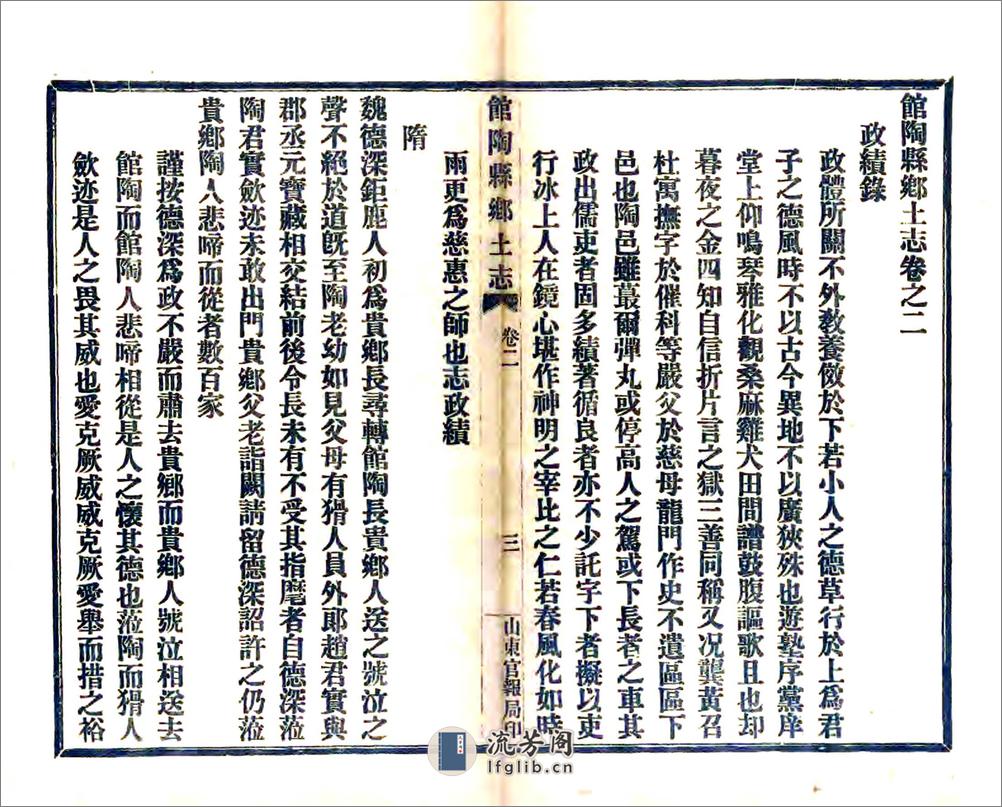 館陶縣鄉土志卷之二
政績錄
政體所關不外教養倣於下若小人之德草行於上爲君
子之德風時不以古今異地不以廣狹殊也遊塾序黨庠
堂上仰鳴琴雅化觀桑麻雞犬田間譜鼓腹謳歌且也却
暮夜之金四知自信折片言之獄三善同稱又况龔黃召
杜寓撫字於催科等嚴父於慈母龍門作史不遺區區下
邑也陶邑雖蕞爾彈丸或停高人之駕或下長者之車其
政出儒吏者固多績著循良者亦不少託字下者擬以吏
行冰上人在鏡心堪作神明之宰比之仁若春風化如時
雨更爲慈惠之師也志政績
館陶縣鄉土志
卷二
三
山東官報局印
隋
魏德深鉅鹿人初爲貴鄉長尋轉館陶長貴鄉人送之號泣之
聲不絕於道既至陶老幼如見父母有猾人員外郎趙君實與
郡丞元寶藏相交結前後令長未有不受其指麾者自德深蒞
陶君實歛迹未敢出門貴鄉父老詣闕請留德深詔許之仍蒞
貴鄉陶人悲啼而從者數百家
謹按德深爲政不嚴而肅去貴鄉而貴鄉人號泣相送去
館陶而館陶人悲啼相從是人之懷其德也蒞陶而猾人
歛迹是人之畏其威也愛克厥威威克厥愛舉而措之裕
流芳阁
lfglib.cn